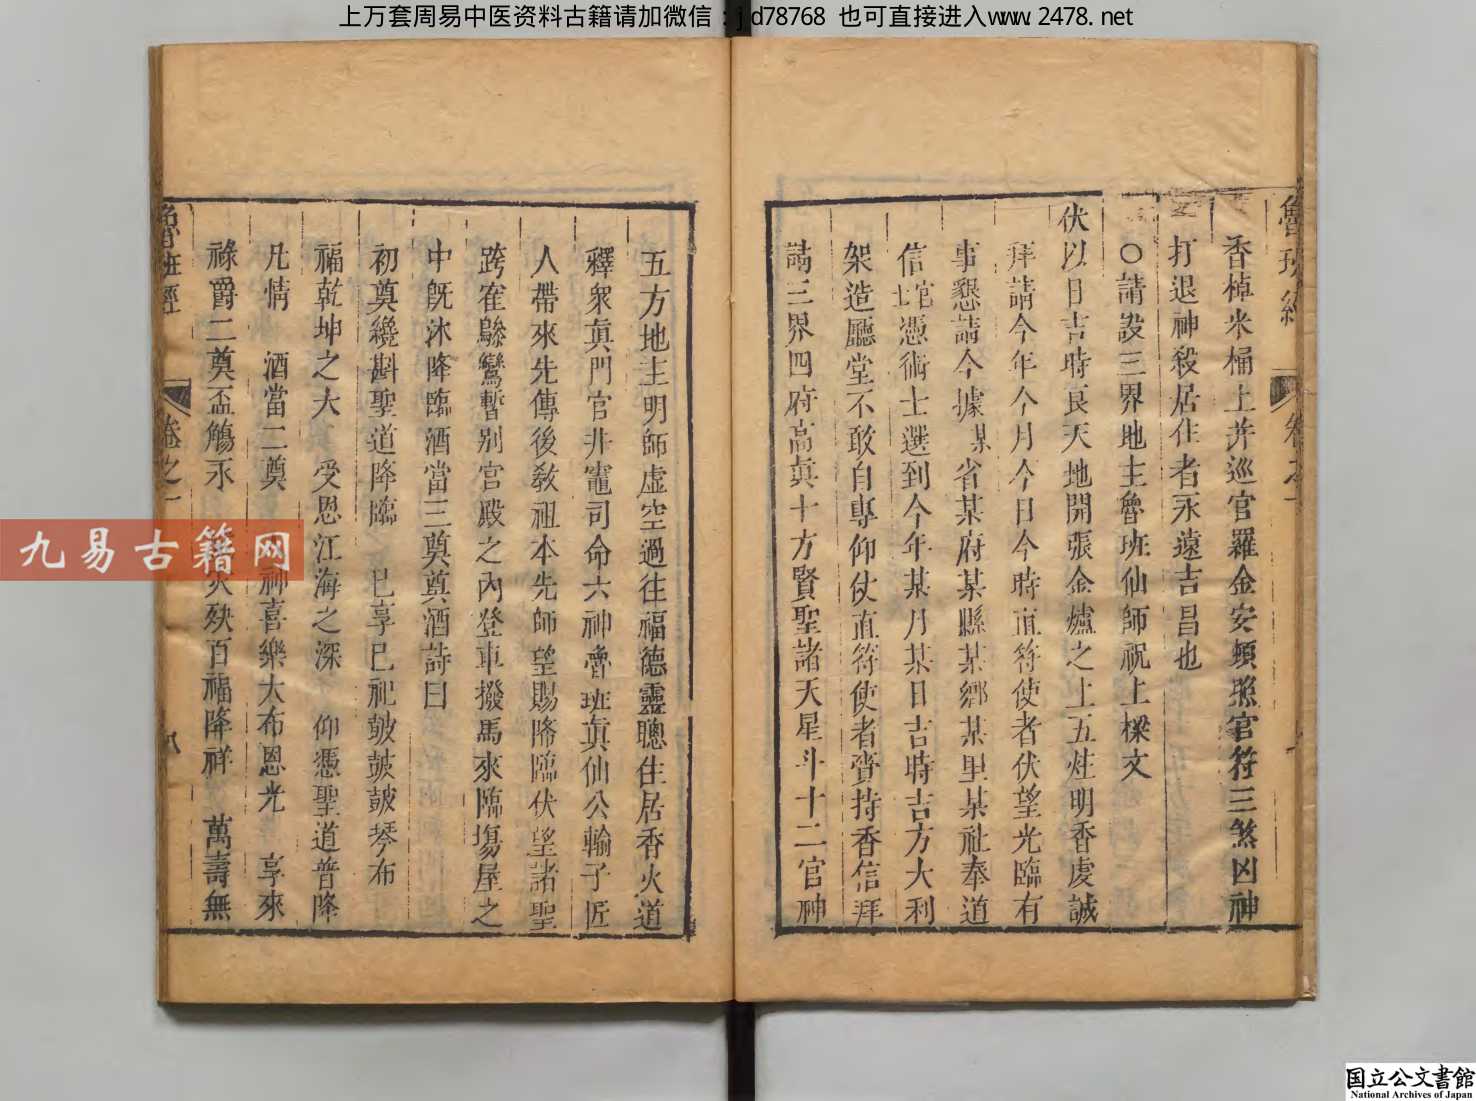 上万套周易中医资料古籍请加微信：jd78768 也可直接进入www.2478.net
魯班經
卷之一
香棹米桶上并巡官羅金安頓照官符三煞凶神
打退神殺居住者永遠吉昌也
○請設三界地主魯班仙師祝上樑文
伏以日吉時良天地開張金爐之上五炷明香虔誠
拜請今年今月今日今時直符使者伏望光臨有
事懇請今據某省某府某縣某鄉某里某社奉道
信官憑術士選到今年某月某日吉時吉方大利
架造廳堂不敢自專仰仗直符使者賫持香信拜
請三界四府高真十方賢聖諸天星斗十二官神
五方地主明師虛空過往福德靈聰住居香火道
釋衆真門官井竈司命六神魯班真仙公輸子匠
人帶來先傳後教祖本先師望賜降臨伏望諸聖
跨隺驂鸞暫别宮殿之內登車撥馬來臨塲屋之
中旣沐降臨酒當三奠奠酒詩曰
初奠纔斟聖道降臨 已享已祀皷皷皷琴布
福乾坤之大 受恩江海之深 仰憑聖道普降
凡情 酒當二奠 神喜樂大布恩光 享來
祿爵二奠盃觴永 災殃百福降祥 萬壽無
魯班經
卷之一
八
九易古籍网
国立公文書館
National Archives of Japan